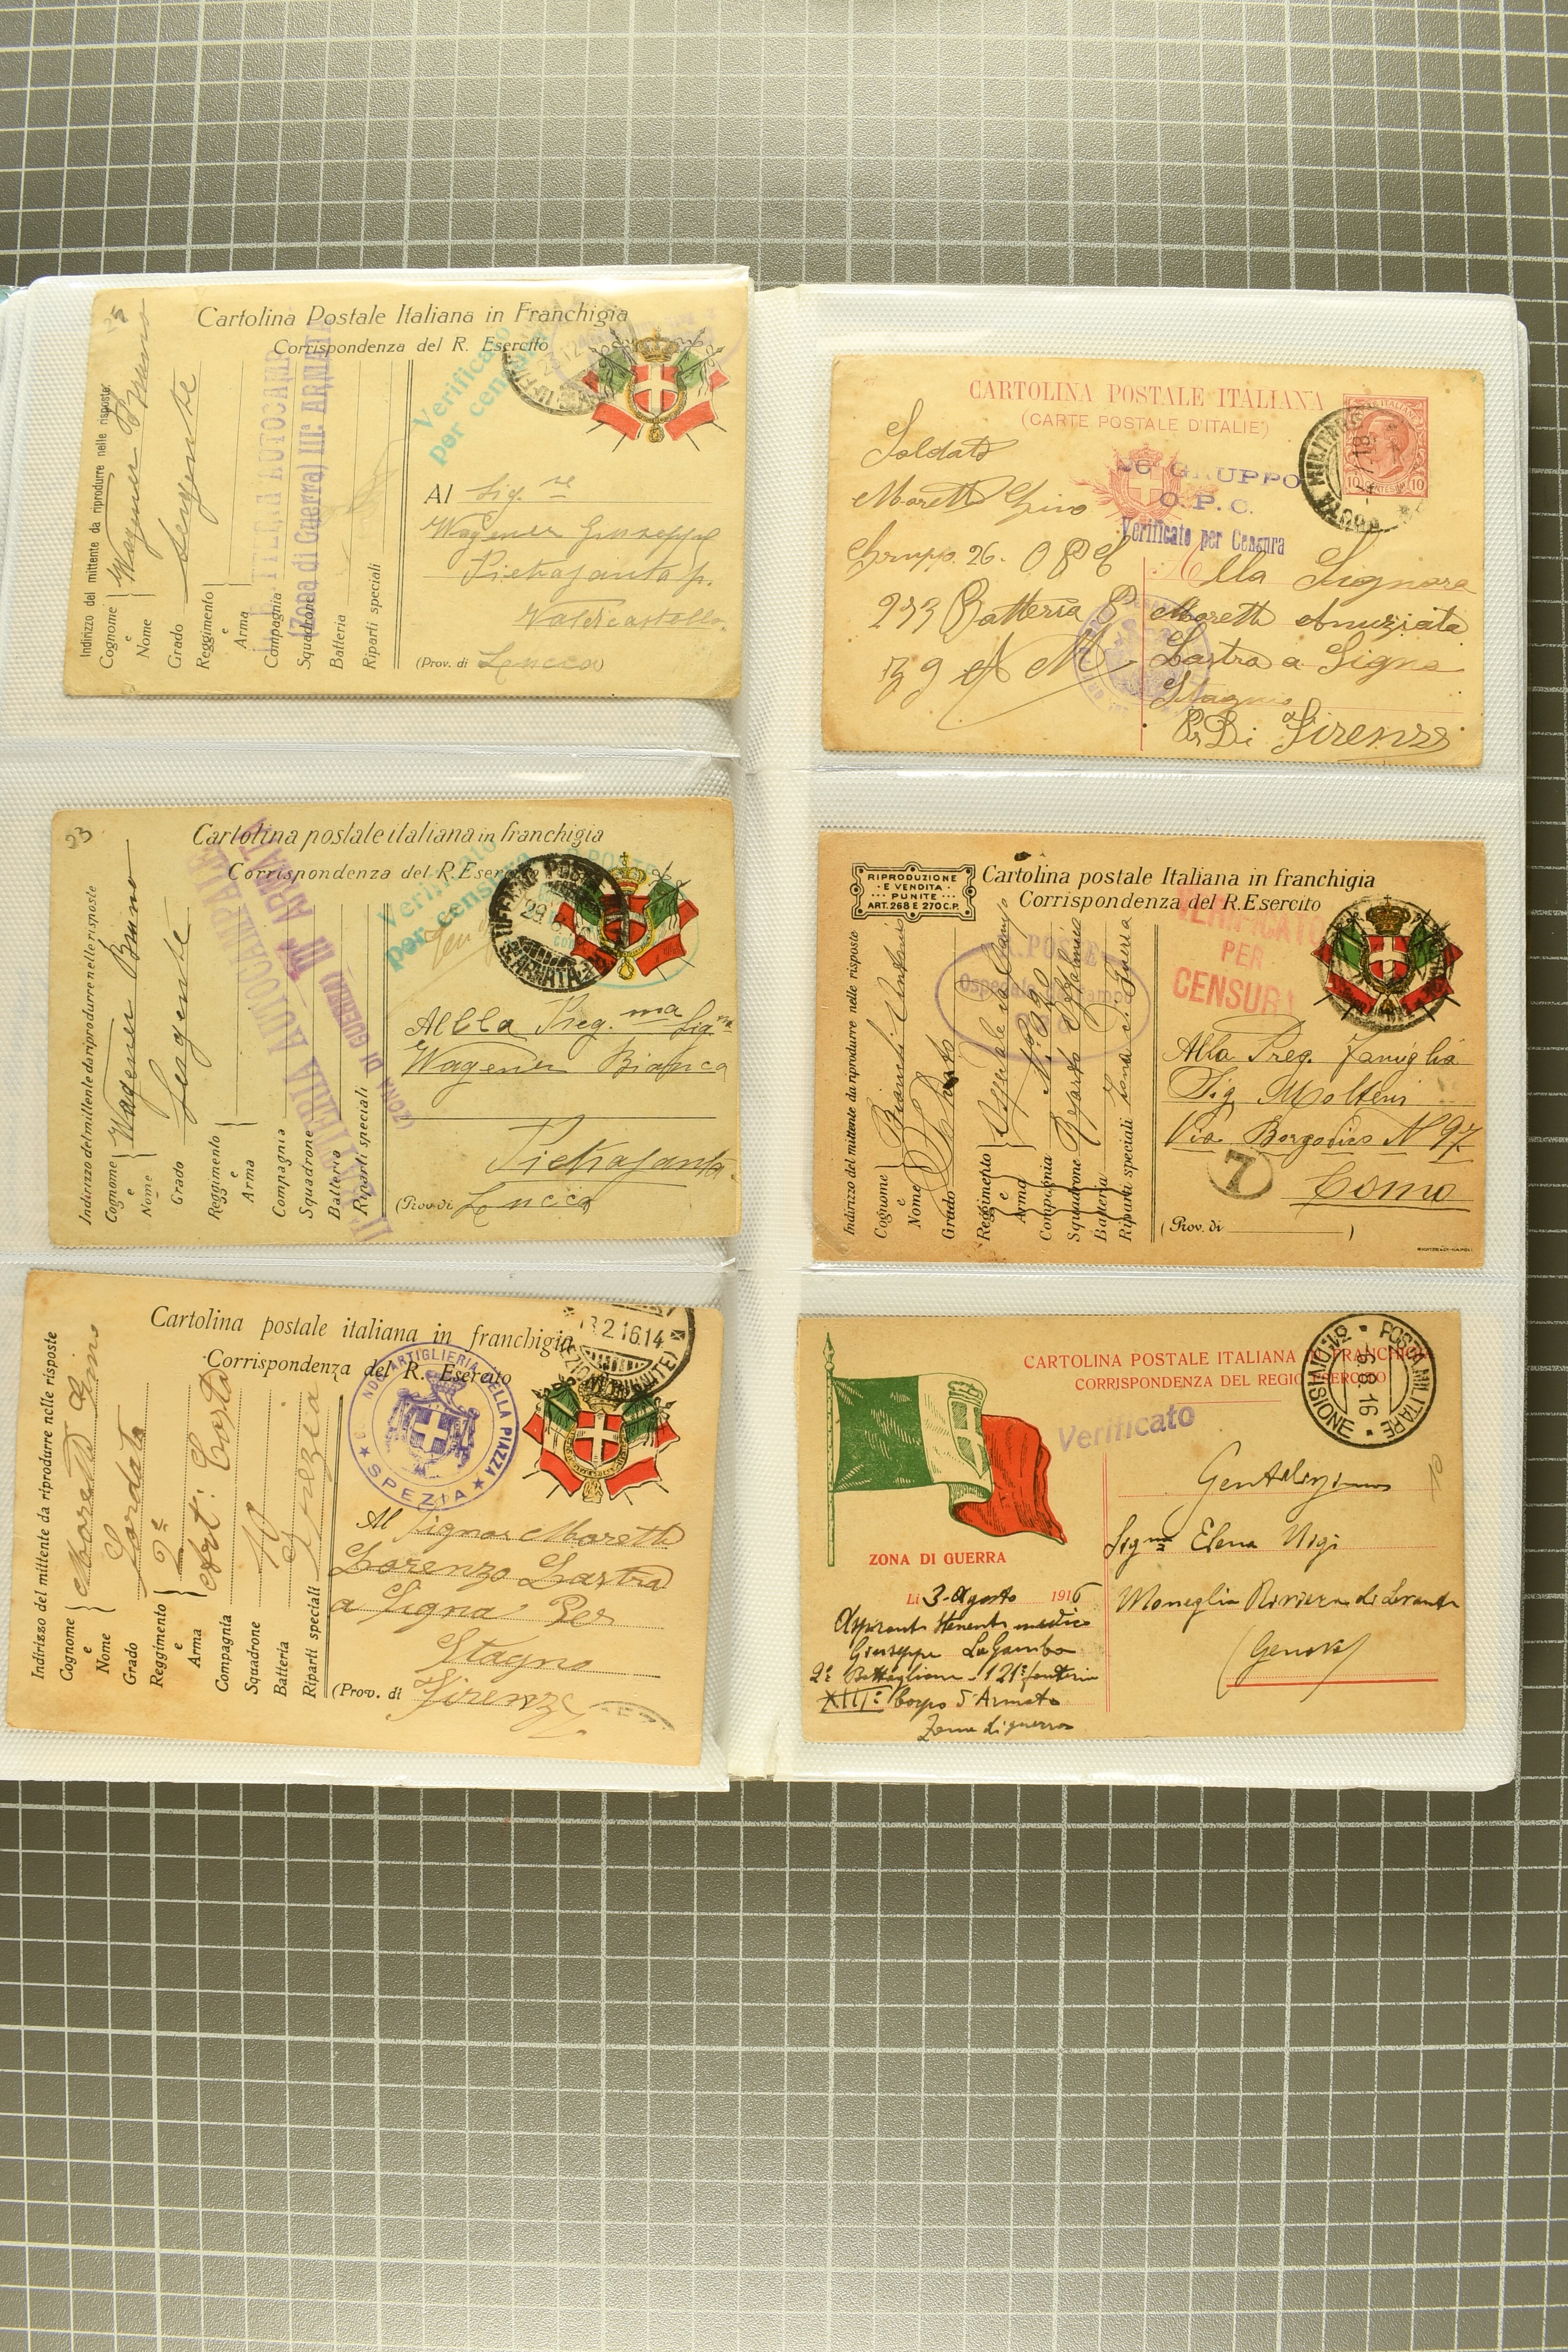 Cartolina Postale Italiana in Franchigia
Corrispondenza del R. Esercito
Verificato
per censura
Indirizzo del mittente da riprodurre nelle risposte
Cognome
e
Nome
Wagener Bruno
Grado Sergente
Reggimento
e
Arma
Compagnia
Squadrone
Batteria
Riparti speciali
(Zona di Guerra) IIIª ARMATA
Al Sig.re
Wagener Giuseppe
Pietrasanta p.
Valdicastello
(Prov. di Lucca)
23
Cartolina postale italiana in franchigia
Corrispondenza del R. Esercito
Verificato
per censura
Indirizzo del mittente da riprodurre nelle risposte
Cognome
e
Nome
Wagener Bruno
Grado Sergente
Reggimento
e
Arma
Compagnia
Squadrone
Batteria
Riparti speciali
BATTERIA AUTOCAMPALE
(ZONA DI GUERRA) IIIª ARMATA
Alla Preg.ma Sig.na
Wagener Bianca
Pietrasanta
(Prov. di Lucca
Cartolina postale italiana in franchigia
Corrispondenza del R. Esercito
13.2.16.14
ARTIGLIERIA DELLA PIAZZA
SPEZIA
Indirizzo del mittente da riprodurre nelle risposte
Cognome
e
Nome
Moretti Gino
Grado Soldato
Reggimento 2º
e
Arma Art. Costa
Compagnia
Squadrone 10
Batteria
Riparti speciali Spezia
Al Signor Moretti
Lorenzo Lastra
a Signa Per
Stagno
(Prov. di Firenze
CARTOLINA POSTALE ITALIANA
(CARTE POSTALE D'ITALIE)
26º GRUPPO
O.P.C.
Verificato per Censura
Soldato
Moretti Gino
Gruppo 26. O P C
233 Batteria
39 M
Alla Signora
Moretti Anuziata
Lastra a Signa
Stagno
Di Firenze
RIPRODUZIONE
E VENDITA
PUNITE
ART. 268 E 270 C.P.
Cartolina postale Italiana in franchigia
Corrispondenza del R. Esercito
VERIFICATO
PER
CENSURA
R. POSTE
Ospedale da Campo
Indirizzo del mittente da riprodurre nelle risposte
Cognome
e
Nome
Grado
Reggimento
e
Arma
Ospedale da Campo
Compagnia
Squadrone
Batteria
Riparti speciali Zona di Guerra
Alla Preg. Famiglia
Sig Molteni
Via Borgovico Nº 97
7
Como
(Prov. di )
CARTOLINA POSTALE ITALIANA IN FRANCHIGIA
CORRISPONDENZA DEL REGIO ESERCITO
POSTA MILITARE
DIVISIONE
6.8.16
Verificato
ZONA DI GUERRA
Li 3-Agosto 1916
Aspirante tenente medico
Giuseppe La Gamba
2º Battaglione - 121º fanteria
XIIIº Corpo d'Armata
Zona di guerra
Gentilissima
Sign.na Elena Nigi
Moneglia Riviera di Levante
(Genova)